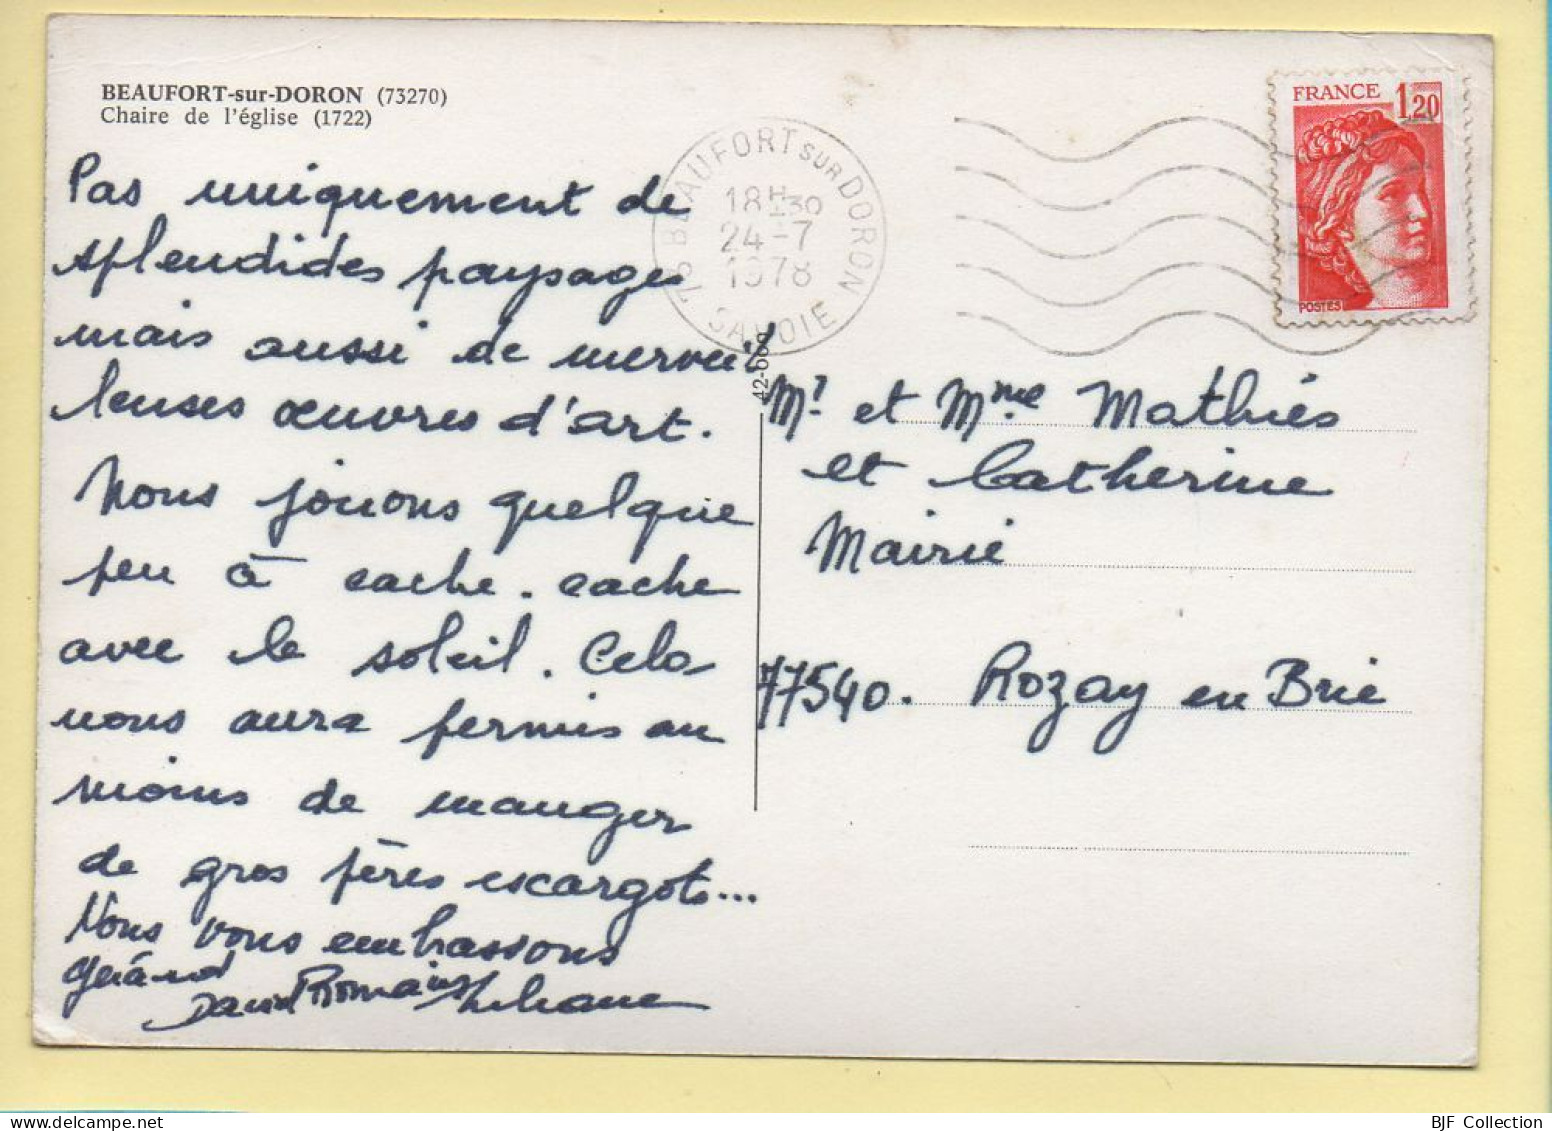 BEAUFORT-sur-DORON (73270)
Chaire de l'église (1722)
Pas uniquement de
splendides paysages
mais aussi de merveil
leuses œuvres d'art.
Nous jouons quelque
peu à cache. cache
avec le soleil. Cela
nous aura permis au
moins de manger
de gros pères escargots...
Nous vous embrassons
Gérard
David Romain Liliane
73 BEAUFORT SUR DORON
18H30
24-7
1978
SAVOIE
FRANCE 1,20
POSTES
Mr et Mme Mathiés
et Catherine
Mairie
77540. Rozay en Brie
BJF Collection